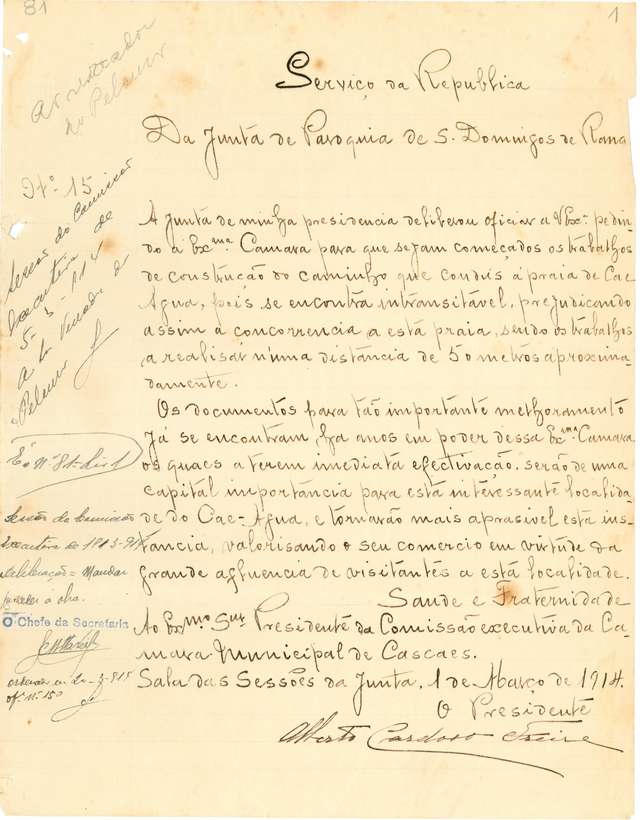 81
1
Arrematador
do Pelouro
Nº 15
Sessão da Comissão
Executiva de
5-3-914
A
Pelouro
Serviço da Republica
Da Junta de Paroquia de S. Domingos de Rana
A Junta de minha presidencia deliberou oficiar a V Exª pedin
do á Exma Camara para que sejam começados os trabalhos
de construção do caminho que condús á praia de Cae
Agua, pois se encontra intransitável, prejudicando
assim a concorrencia a esta praia, sendo os trabalhos
a realisar n'uma distância de 50 metros aproxima-
damente.
Os documentos para tão importante melhoramento
já se encontram, ha anos em poder dessa Exma Camara
os quaes a terem imediata efectivação. serão de uma
capital importância para esta interessante localida
de do Cae-Agua, e tornarão mais aprasivel esta ins
tancia, valorisando o seu comercio em virtude da
grande afluencia de visitantes a esta localidade.
Saude e Fraternidade
Ao Exmo Snr Presidente da Comissão executiva da Ca-
mara Municipal de Cascaes.
Sala das Sessões da Junta, 1 de Março de 1914.
O Presidente
Alberto Cardoso Freire
Sessão da Comissão
Executiva de
deliberação = Mandar
proceder á obra.
O Chefe da Secretaria
of. nº 150